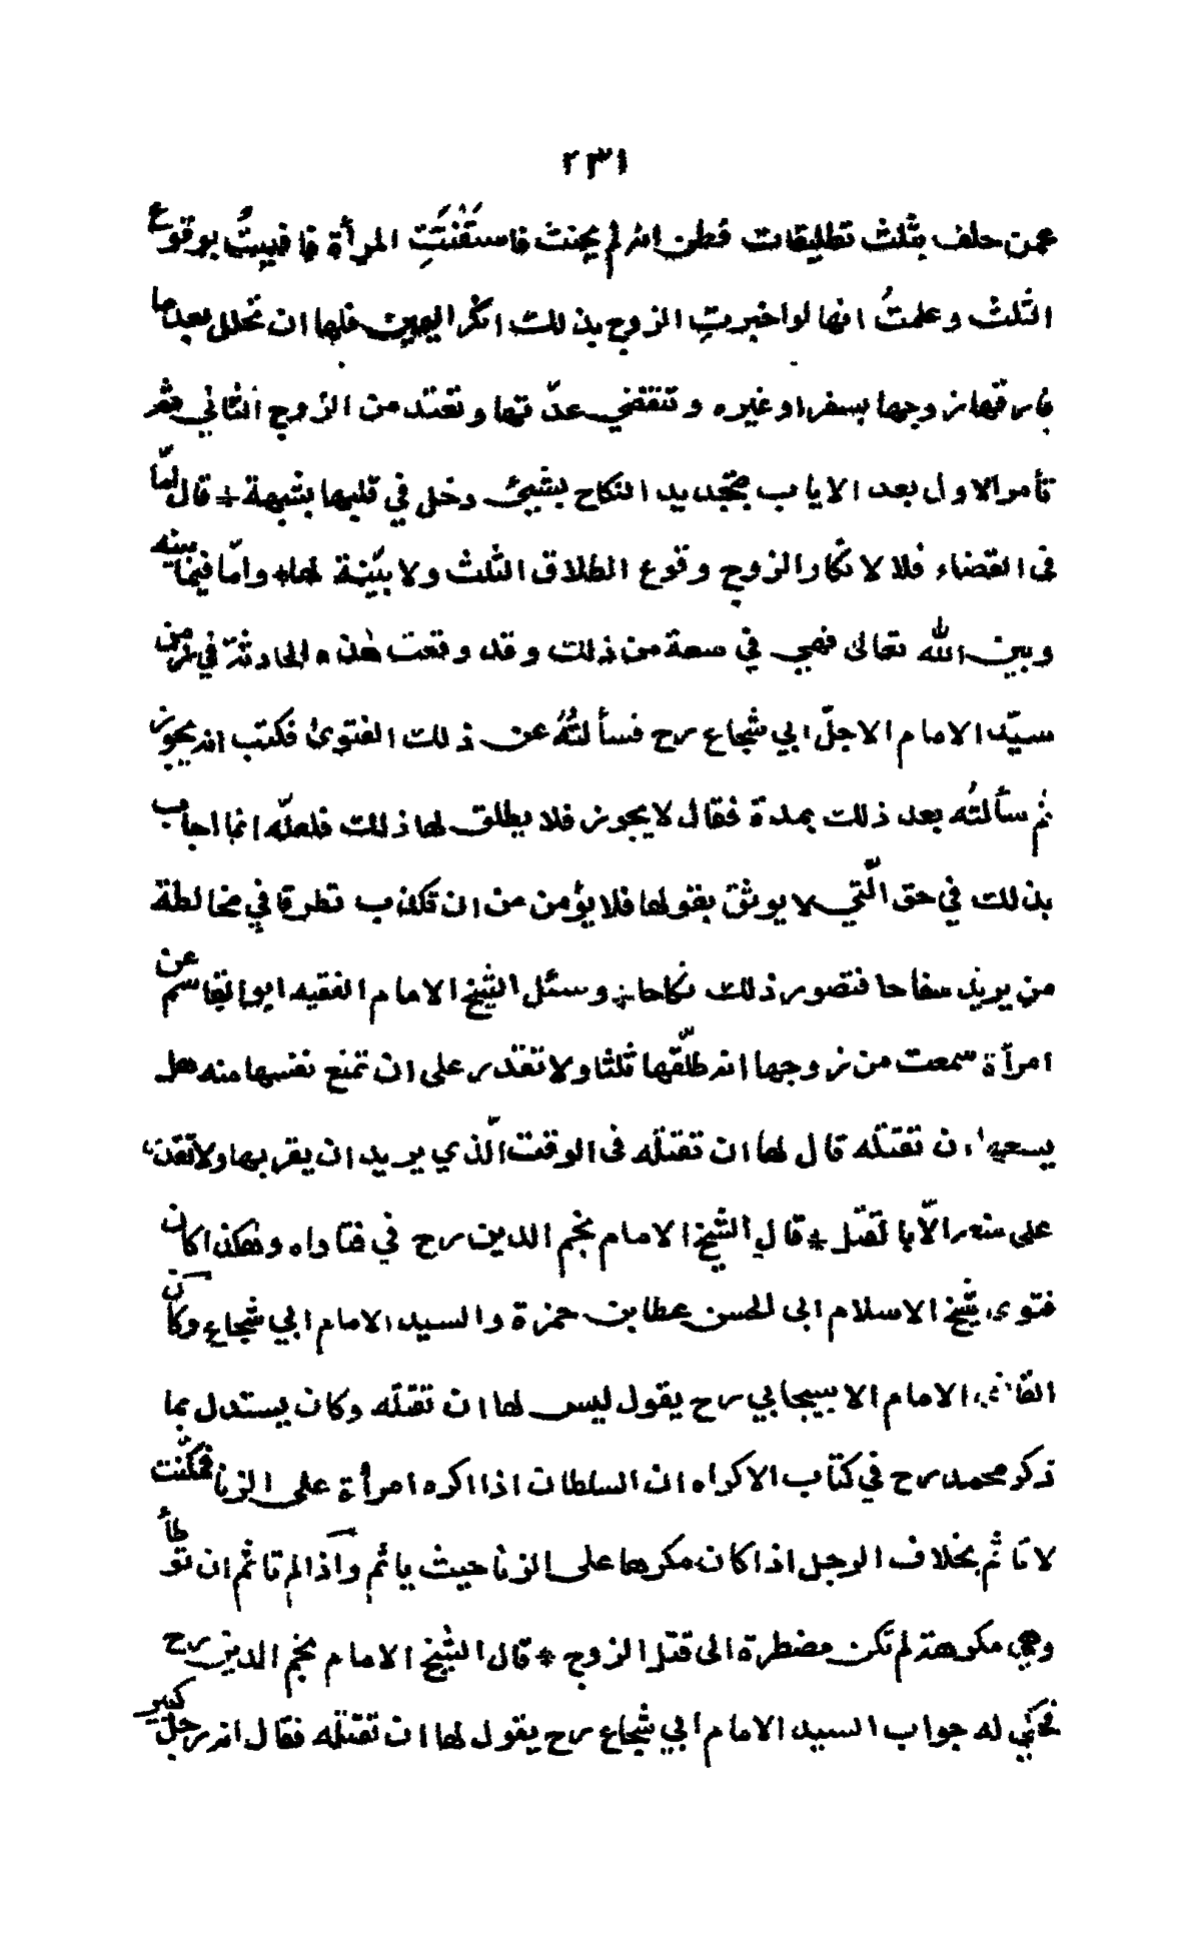 ٢٣١
عمن حلف بثلث تطليقات فظن انه لم يحنث فاستَفْتَتِ المرأة فافتيتُ بوقوع
الثلث وعلمتُ انها لو اخبرتِ الزوج بذلك انكر اليمين فلها ان تحلل بعد ما
فارقها زوجها بسفر او غيره وتنقضي عدّتها وتعتد من الزوج الثاني ثم
تأمر الاول بعد الاياب بتجديد النكاح لشيئ دخل في قلبها بشبهة * قال امّا
في القضاء فلا لانكار الزوج وقوع الطلاق الثلث ولا بيّنة لها * وامّا فيما بينه
وبين الله تعالى فهي في سعة من ذلك وقد وقعت هذه الحادثة في زمن
سيّد الامام الاجلّ ابي شجاع رح فسألتُهُ عن ذلك الفتوى فكتب انه يجوز
ثم سألتُه بعد ذلك بمدة فقال لا يجوز فلا يطلق لها ذلك فلعلّه انما اجاب
بذلك في حق الّتي لا يوثق بقولها فلا يؤمن من ان تكذب تطرقا في مخالطة
من يريد سفاحا فتصور ذلك نكاحا * وسئل الشيخ الامام الفقيه ابو القاسم عن
امرأة سمعت من زوجها انه طلّقها ثلثا ولا تقدر على ان تمنع نفسها منه هل
يسعها ان تقتله قال لها ان تقتله في الوقت الّذي يريد ان يقربها ولا تقدر
على منعه الّا بالقتل * قال الشيخ الامام نجم الدين رح في فتاواه وهكذا كان
فتوى شيخ الاسلام ابي الحسن عطا بن حمزة والسيد الامام ابي شجاع وكان
القاضي الامام الاسبيجابي رح يقول ليس لها ان تقتله وكان يستدل بما
ذكر محمد رح في كتاب الاكراه ان السلطان اذا اكره امرأة على الزنا فمكّنت
لا تأثم بخلاف الرجل اذا كان مكرها على الزنا حيث ياثم وآذا لم تاثم ان توطأ
وهي مكرهة لم تكن مضطرة الى قتل الزوج * قال الشيخ الامام نجم الدين رح
فحُكي له جواب السيد الامام ابي شجاع رح يقول لها ان تقتله فقال انه رجل كبير